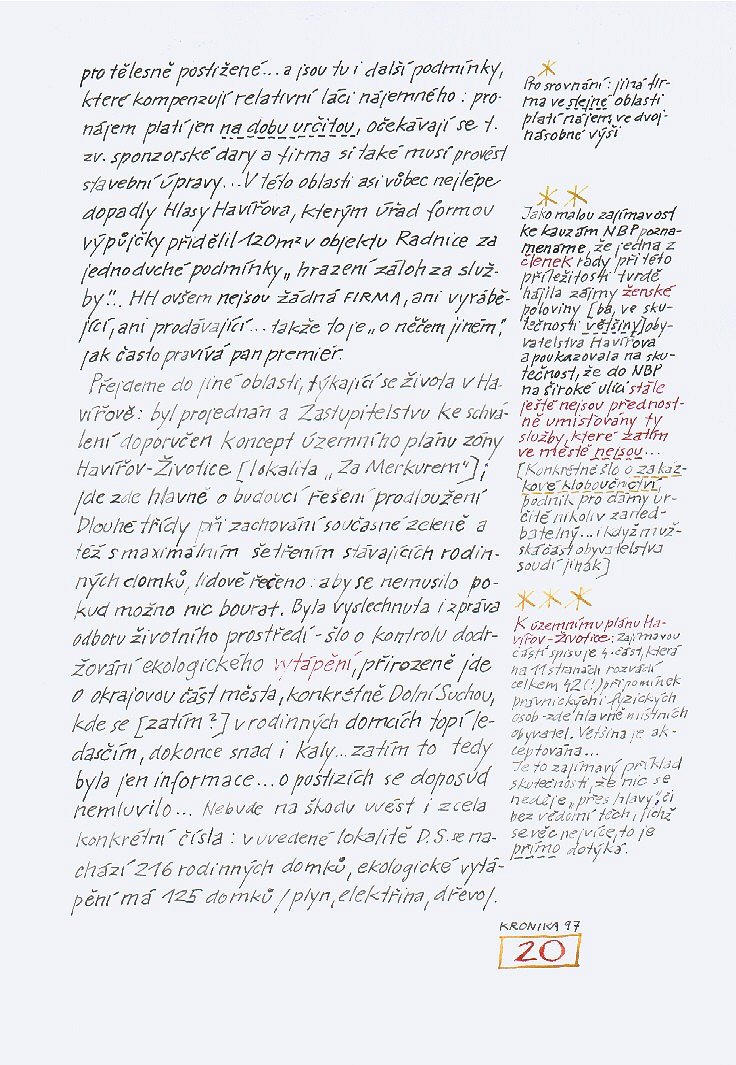 pro tělesně postižené... a jsou tu i další podmínky,
které kompenzují relativní láci nájemného: pro-
nájem platí jen na dobu určitou, očekávají se t.
zv. sponzorské dary a firma si také musí provést
stavební úpravy... V této oblasti asi vůbec nejlépe
dopadly Hlasy Havířova, kterým úřad formou
výpůjčky přidělil 120m² v objektu Radnice za
jednoduché podmínky „hrazení záloh za služ-
by“... HH ovšem nejsou žádná FIRMA, ani vyrábě-
jící, ani prodávající... takže to je „o něčem jiném“,
jak často pravívá pan premiér.
Přejdeme do jiné oblasti, týkající se života v Ha-
vířově: byl projednán a Zastupitelstvu ke schvá-
lení doporučen koncept územního plánu zóny
Havířov-Životice [lokalita „Za Merkurem“];
jde zde hlavně o budoucí řešení prodloužení
Dlouhé třídy při zachování současné zeleně a
též s maximálním šetřením stávajících rodin-
ných domků, lidově řečeno: aby se nemusilo po-
kud možno nic bourat. Byla vyslechnuta i zpráva
odboru životního prostředí - šlo o kontrolu dodr-
žování ekologického vytápění, přirozeně jde
o okrajovou část města, konkrétně Dolní Suchou,
kde se [zatím?] v rodinných domcích topí le-
dasčím, dokonce snad i kaly... zatím to tedy
byla jen informace... o postizích se doposud
nemluvilo... Nebude na škodu uvést i zcela
konkrétní čísla: v uvedené lokalitě D.S. se na-
chází 216 rodinných domků, ekologické vytá-
pění má 125 domků /plyn, elektřina, dřevo/.
*
Pro srovnání: jiná fir-
ma ve stejné oblasti
platí nájem ve dvoj-
násobné výši
* *
Jako malou zajímavost
ke kauzám NBP pozna-
menáme, že jedna z
členek rady při této
příležitosti tvrdě
hájila zájmy ženské
poloviny [ba, ve sku-
tečnosti většiny] oby-
vatelstva Havířova
a poukazovala na sku-
tečnost, že do NBP
na Široké ulici stále
ještě nejsou přednost-
ně umisťovány ty
služby, které zatím
ve městě nejsou...
[Konkrétně šlo o zakáz-
kové kloboučnictví,
podnik pro dámy ur-
čitě nikoliv zaned-
batelný... i když muž-
ská část obyvatelstva
soudí jinak]
* * *
K územnímu plánu Ha-
vířov-Životice: zajímavou
částí spisu je 4. část, která
na 11 stranách rozvádí
celkem 42 (!) připomínek
právnických i fyzických
osob - zde hlavně místních
obyvatel. Většina je ak-
ceptována...
Je to zajímavý příklad
skutečnosti, že nic se
neděje „přes hlavy“, či
bez vědomí těch, jichž
se věc nejvíce, to je
přímo dotýká.
KRONIKA 97
20